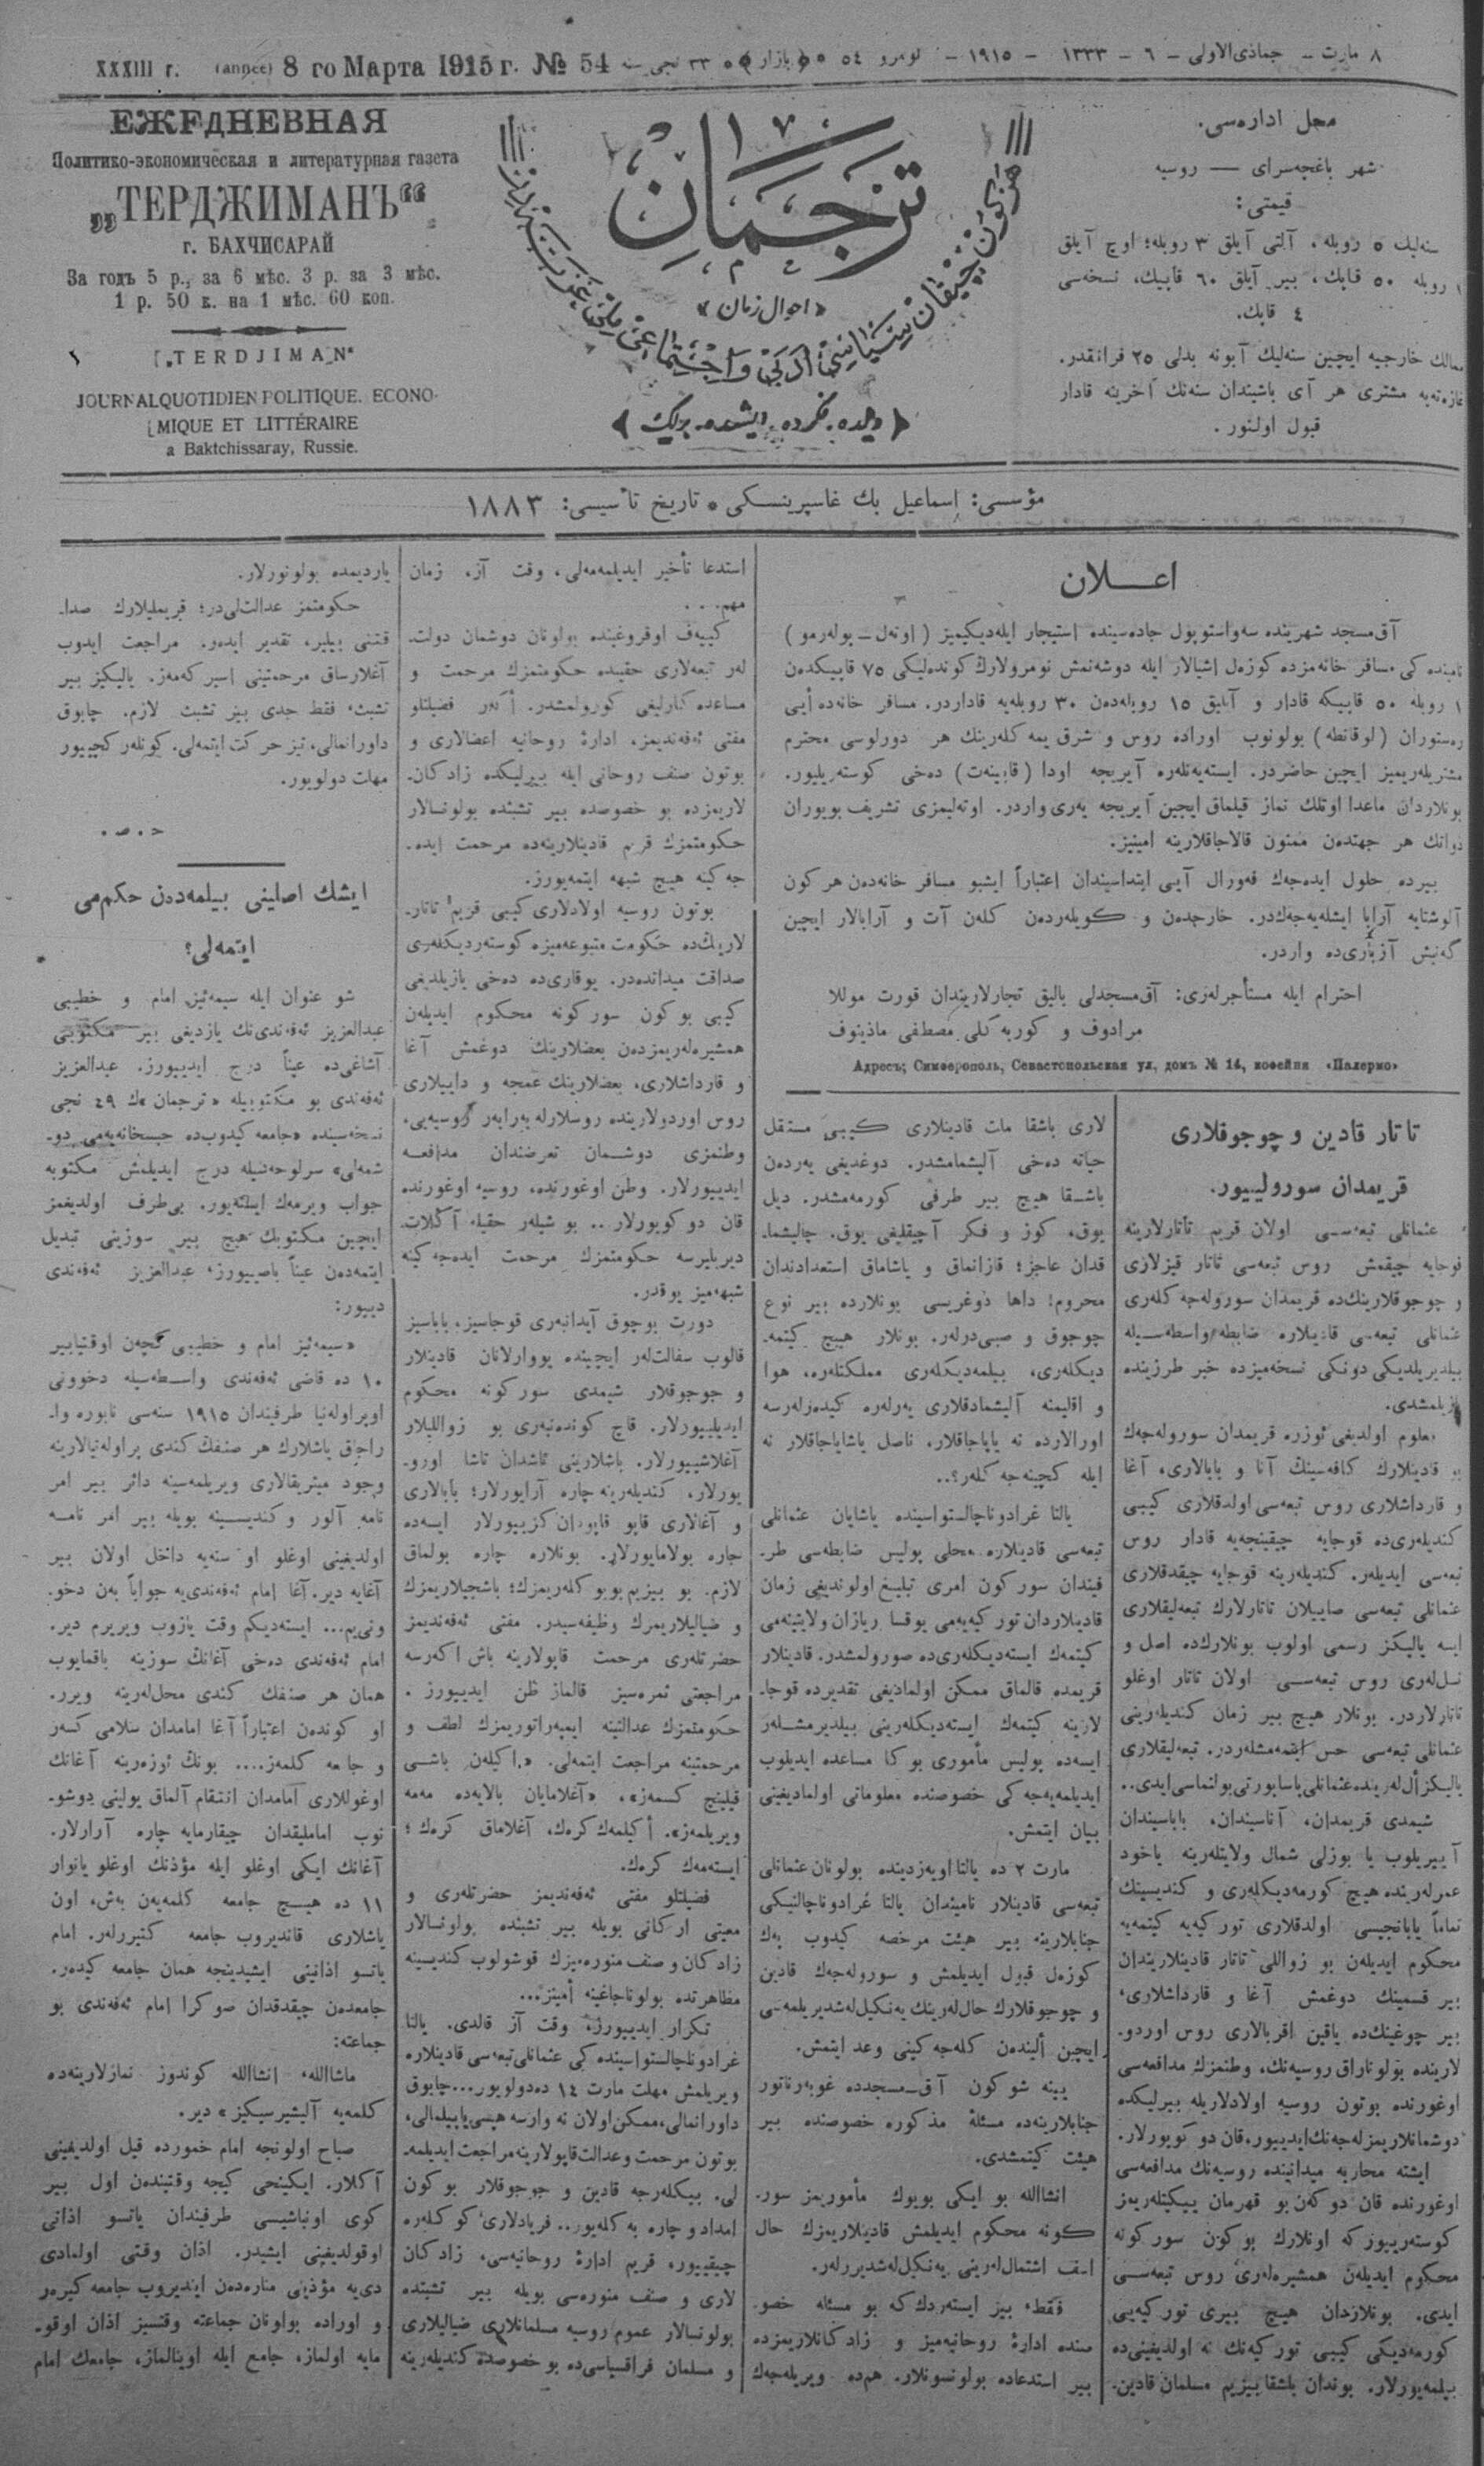 XXXIII г. (année) 8 го Марта 1915 г. № 54
٨ مارت – جماذی‌الاولی – ٦ – ١٣٣٣ – ١٩١٥ – نومرو ٥٤ (بازار) ٣٣ نجی سنه
ЕЖЕДНЕВНАЯ
Политико-экономическая и литературная газета
„ТЕРДЖИМАНЪ“
г. БАХЧИСАРАЙ
За годъ 5 р., за 6 мѣс. 3 р. за 3 мѣс.
1 р. 50 к. на 1 мѣс. 60 коп.
„TERDJIMAN“
JOURNAL QUOTIDIEN POLITIQUE. ECONO-
MIQUE ET LITTÉRAIRE
a Baktchissaray, Russie.
ترجمان
«احوال زمان»
دیلده، فکرده، ایشده، برلك
محل اداره‌سی.
شهر باغچه‌سرای — روسیه
قیمتی:
سنه‌لیك ٥ روبله، آلتی آیلق ٣ روبله؛ اوچ آیلق
١ روبله ٥٠ قاپك، بیر آیلق ٦٠ قاپیك، نسخه‌سی
٤ قاپك.
ممالك خارجیه ایچین سنه‌لیك آبونه بدلی ٢٥ فرانقدر.
غازه‌ته‌یه مشتری هر آی باشیندان سنه‌نك آخرینه قادار
قبول اولنور.
مؤسسی: اسماعیل بك غاسپرینسکی * تاریخ تأسیسی: ١٨٨٣
اعـــلان
آق‌مسجد شهرینده سه‌واستوپول جاده‌سینده استیجار ایله‌دیکیمیز (اوته‌ل ـ پوله‌رمو)
نامنده کی مسافر خانه‌مزده کوزه‌ل اشیالار ایله دوشه‌نمش نومرولارڭ کونده‌لیکی ٧٥ قاپیکدن
١ روبله ٥٠ قاپیکه قادار و آیلیق ١٥ روبله‌دن ٣٠ روبله‌یه قاداردر. مسافر خانه‌ده أیی
ره‌ستوران (لوقانطه) بولونوب اوراده روس و شرق یمه کله‌رینك هر دورلوسی محترم
مشتریله‌ریمیز ایچین حاضردر. ایسته‌یه‌نله‌ره آیریجه اودا (قابینه‌ت) ده‌خی کوسته‌ریلیور.
بونلاردان ماعدا اوتلك نماز قیلماق ایچین آیریجه یه‌ری واردر. اوته‌لیمزی تشریف بویوران
ذواتك هر جهتدن ممنون قالاجاقلارینه امینیز.
بیرده حلول ایده‌جه‌ك فه‌ورال آیی ابتداسیندان اعتباراً ایشبو مسافر خانه‌دن هر کون
آلوشتایه آرابا ایشله‌یه‌جه‌كدر. خارجدن و کویله‌ردن کله‌ن آت و آرابالار ایچین
گه‌نیش آزباری‌ده واردر.
احترام ایله مستأجرله‌ری: آق‌مسجدلی بالیق تجارلاریندان قورت موللا
مرادوف و کوربه‌کلی مصطفی ماذینوف
Адресъ; Симферополь, Севастопольская ул, домъ № 14, кофейня «Палермо»
تاتار قادین و چوجوقلاری
قریمدان سورولییور.
عثمانلی تبعه‌سـی اولان قریم تاتارلارینه
قوجایه چیقمش روس تبعه‌سی تاتار قیزلاری
و چوجوقلارینك‌ده قریمدان سوروله‌جه کله‌ری
عثمانلی تبعه‌سی قادینلاره ضابطه واسطه‌سـیله
بیلدیریلدیکی دونکی نسخه‌میزده خبر طرزینده
یازیلمشدی.
معلوم اولدیغی ئوزره قریمدان سوروله‌جه‌ك
بو قادینلارك کافه‌سینك آنا و بابالاری، آغا
و قارداشلاری روس تبعه‌سی اولدقلاری کیبی
کندیله‌ری‌ده قوجایه چیقینجه‌یه قادار روس
تبعه‌سی ایدیله‌ر. کندیله‌رینه قوجایه چیقدقلاری
عثمانلی تبعه‌سی صاییلان تاتارلارك تبعه‌لیقلاری
ایسه یالیکز رسمی اولوب بونلارك‌ده اصل و
نسل‌له‌ری روس تبعه‌سـی اولان تاتار اوغلو
تاتارلاردر. بونلار هیچ بیر زمان کندیله‌رینی
عثمانلی تبعه‌سی حس ایتمه‌مشله‌ردر. تبعه‌لیقلاری
یالیکز أل‌له‌رینده عثمانلی پاساپورتی بولنماسی ایدی..
شیمدی قریمدان، آناسیندان، باباسیندان
آییریلوب یا بوزلی شمال ولایتله‌رینه یاخود
عمرله‌رینده هیچ کورمه‌دیکله‌ری و کندیسینك
تماماً یابانجیسی اولدقلاری تورکیه‌یه کیتمه‌یه
محکوم ایدیله‌ن بو زواللی تاتار قادینلاریندان
بیر قسمینك دوغمش آغا و قارداشلاری،
بیر چوغینك‌ده یاقین اقربالاری روس اوردو-
لارینده بولوناراق روسیه‌نك، وطنمزك مدافعه‌سی
اوغورنده بوتون روسیه اولادلاریله بیرلیکده
دوشمانلاریمزله جه‌نك ایدییور، قان دوکویورلار.
ایشته محاربه میدانینده روسیه‌نك مدافعه‌سی
اوغورنده قان دوکه‌ن بو قهرمان ییکیتله‌ریمز
کوسته‌رییوز که اونلارك بوکون سورکونه
محکوم ایدیله‌ن همشیره‌له‌ری روس تبعه‌سـی
ایدی. بونلاردان هیـچ بیری تورکیه‌یی
کورمه‌دیکی کیبی تورکیه‌نك نه اولدیغینی‌ده
بیلمه‌یورلار. بوندان باشقا بیزیم مسلمان قادین-
لاری باشقا ملت قادینلاری کیبی مستقل
حیاته ده‌خی آلیشمامشدر. دوغدیغی یه‌ردن
باشـقا هیچ بیر طرفی کورمه‌مشدر. دیل
یوق، کوز و فکر آچیقلیغی یوق. چالیشما-
قدان عاجز؛ قازانماق و یاشاماق استعدادندان
محروم! داها دوغریسی بونلارده بیر نوع
چوجوق و صبی‌درله‌ر. بونلار هیـچ کیتمه-
دیکله‌ری، بیلمه‌دیکله‌ری مملکتله‌ره، هوا
و اقلیمنه آلیشمادقلاری یه‌رله‌ره کیده‌رله‌رسه
اورالارده نه یاپاجاقلار، ناصل یاشایاجاقلار نه
ایله کچینه‌جه کله‌ر؟..
یالتا غرادوناچالستواسینده یاشایان عثمانلی
تبعه‌سی قادینلاره محلی پولیس ضابطه‌سی طر-
فیندان سورکون امری تبلیغ اولوندیغی زمان
قادینلاردان تورکیه‌یه‌می یوقسا ریازان ولایتینه‌می
کیتمه‌ك ایسته‌دیکله‌ری‌ده صورولمشدر. قادینلار
قریمده قالماق ممکن اولمادیغی تقدیرده قوجا-
لارینه کیتمه‌ك ایسته‌دیکله‌رینی بیلدیرمشـله‌ر
ایسه‌ده پولیس مأموری بوکا مساعده ایدیلوب
ایدیلمه‌یه‌جه کی خصوصنده معلوماتی اولمادیغینی
بیان ایتمش.
مارت ٢ ده یالتا اویه‌زدینده بولونان عثمانلی
تبعه‌سی قادینلار نامیندان یالتا غرادوناچالنیکی
جنابلارینه بیر هیئت مرخصه کیدوب په‌ك
کوزه‌ل قبول ایدیلمش و سوروله‌جه‌ك قادین
و چوجوقلارك حال‌له‌رینك یه‌نکیل‌له‌شدیریلمه‌سی
ایچین ألینده‌ن کله‌جه کینی وعد ایتمش.
یینه شو کون آق‌ـ‌مسجدده غوبه‌رناتور
جنابلارینه‌ده مسئلهٔ مذکوره خصوصنده بیر
هیئت کیتمشدی.
انشاالله بو ایکی بویوك مأموریمز سور-
کونه محکوم ایدیلمش قادینلاریمزك حال
اسف اشتمال‌له‌رینی یه‌نکیل‌له‌شدیررله‌ر.
فقط، بیز ایسته‌ردك که بو مسئله خصو-
صنده ادارهٔ روحانیه‌میز و زادکانلاریمزده
بیر استدعاده بولونسونلار. هم‌ده ویریله‌جه‌ك
استدعا تأخیر ایدیلمه‌مه‌لی، وقت آز، زمان
مهم...
کییه‌ف اوقروغینده بولونان دوشمان دولت-
له‌ر تبعه‌لاری حقینده حکومتمزك مرحمت و
مساعده‌کارلیغی کورولمشدر. أکه‌ر فضیلتلو
مفتی ئه‌فه‌ندیمز، ادارهٔ روحانیه اعضالاری و
بوتون صنف روحانی ایله بیرلیکده زادکان-
لاریمزده بو خصوصده بیر تشبثده بولونسالار
حکومتمزك قریم قادینلارینه‌ده مرحمت ایده-
جه کینه هیچ شبهه ایتمه‌یورز.
بوتون روسیه اولادلاری کیبی قریم تاتار-
لارینك‌ده حکومت متبوعه‌میزه کوسته‌ردیکله‌ری
صداقت میدانده‌در. یوقاری‌ده ده‌خی یازیلدیغی
کیبی بوکون سورکونه محکوم ایدیله‌ن
همشیره‌له‌ریمزدن بعضلارینك دوغمش آغا
و قارداشلاری، بعضلارینك عمجه و داییلاری
روس اوردولارینده روسلارله به‌رابه‌ر روسیه‌یی،
وطنمزی دوشـمان تعرضندان مدافعـه
ایدییورلار. وطن اوغورنده، روسیه اوغورنده
قان دوکویورلار.. بو شیله‌ر حقیله آکلات-
دیریلیرسه حکومتمزك مرحمت ایده‌جه کینه
شبهه‌میز یوقدر.
دورت بوچوق آیدانبه‌ری قوجاسیز، باباسیز
قالوب سفالت‌له‌ر ایچینده یووارلانان قادینلار
و چوجوقلار شیمدی سورکونه محکوم
ایدیلییورلار. قاچ کوندەنبه‌ری بو زواللیلار
آغلاشییورلار. باشلارینی تاشدان تاشا اورو-
یورلار، کندیله‌رینه چاره آرایورلار؛ بابالاری
و آغالاری قاپو قاپودان کزییورلار ایسه‌ده
چاره بولامایورلار. بونلاره چاره بولماق
لازم. بو بیزیم بویو کله‌ریمزك؛ باشجیلاریمزك
و ضیالیلاریمزك وظیفه‌سیدر. مفتی ئه‌فه‌ندیمز
حضرتله‌ری مرحمت قاپولارینه باش اکه‌رسه
مراجعتی ثمره‌سیز قالماز ظن ایدییورز.
حکومتمزك عدالتینه ایمپه‌راتوریمزك لطف و
مرحمتینه مراجعت ایتمه‌لی. «اکیله‌ن باشـی
قیلینچ کسمه‌ز»، «آغلامایان بالایه‌ده مه‌مه
ویریلمه‌ز». أکیلمه‌ك کره‌ك، آغلاماق کره‌ك؛
ایسته‌مه‌ك کره‌ك.
فضیلتلو مفتی ئه‌فه‌ندیمز حضرتله‌ری و
معیتی ارکانی بویله بیر تشبثده بولونسالار
زادکان و صنف منوره‌میزك قوشولوب کندیسینه
مظاهرتده بولوناجاغینه أمینز...
تکرار ایدییورز، وقت آز قالدی. یالتا
غرادوناچالستواسینده کی عثمانلی تبعه‌سی قادینلاره
ویریلمش مهلت مارت ١٤ ده دولویور... چابوق
داورانمالی، ممکن اولان نه وارسه هپسی یاپیلمالی،
بوتون مرحمت و عدالت قاپولارینه مراجعت ایدیلمه-
لی. بیکله‌رجه قادین و چوجوقلار بوکون
امداد و چاره به کله‌یور.. فریادلاری کوکله‌ره
چیقییور، قریم ادارهٔ روحانیه‌سی، زادکان
لاری و صنف منوره‌سی بویله بیر تشبثده
بولونسالار عموم روسیه مسلمانلاری ضیالیلاری
و مسلمان فراقسیاسی‌ده بو خصوصده کندیله‌رینه
یاردیمده بولونورلار.
حکومتمز عدالت‌لی‌در؛ قریملیلارك صدا-
قتنی بیلیر، تقدیر ایده‌ر. مراجعت ایدوب
آغلارساق مرحمتینی اسیرکه‌مه‌ز. یالیکز بیر
تشبث، فقط جدی بیر تشبث لازم. چابوق
داورانمالی، تیز حرکت ایتمه‌لی. کونله‌ر کچییور
مهلت دولویور.
ح. ص.
ایشك اصلینی بیلمه‌دن حکم‌می
ایتمه‌لی؟
شو عنوان ایله سیمه‌ئیز امام و خطیبی
عبدالعزیز ئه‌فه‌ندی‌نك یازدیغی بیر مکتوبنی
آشاغی‌ده عیناً درج ایدییورز. عبدالعزیز
ئه‌فه‌ندی بو مکتوبیله «ترجمان»ك ٤٩ نجی
نسخه‌سینده «جامعه کیدوب‌ده حبسخانه‌یه‌می دو-
شمه‌لی» سرلوحه‌سیله درج ایدیلمش مکتوبه
جواب ویرمه‌ك ایسته‌یور. بی‌طرف اولدیغمز
ایچین مکتوبك هیچ بیر سوزینی تبدیل
ایتمه‌دن عیناً باصییورز، عبدالعزیز ئه‌فه‌ندی
دییور:
«سیمه‌ئیز امام و خطیبی کچه‌ن اوقتیابیر
١٠ ده قاضی ئه‌فه‌ندی واسـطه‌سیله دخوونی
اوپراوله‌نیا طرفیندان ١٩١٥ سنه‌سی نابوره وا-
راجاق یاشلارك هر صنفڭ کندی پراوله‌نیالارینه
وجود میتریقالاری ویریلمه‌سینه دائر بیر امر
نامه آلور و کندیسـینه بویله بیر امر نامـه
اولدیغینی اوغلو او سنه‌یه داخل اولان بیر
آغایه دیر. آغا امام ئه‌فه‌ندی‌یه جواباً به‌ن دخو-
ونی‌یم... ایسته‌دیکم وقت یازوب ویریرم دیر.
امام ئه‌فه‌ندی ده‌خی آغانڭ سوزینه باقمایوب
همان هر صنفك کندی محل‌له‌رینه ویرر.
او کوندن اعتباراً آغا امامدان سلامی کسه‌ر
و جامعه کلمه‌ز.... بونڭ ئوزه‌رینه آغانڭ
اوغوللاری امامدان انتقام آلماق یولینی دوشو-
نوب اماملیقدان چیقارمایه چاره آرارلار.
آغانك ایکی اوغلو ایله مؤذنك اوغلو یانوار
١١ ده هیـچ جامعه کلمه‌یه‌ن به‌ش، اون
یاشلاری قاندیروب جامعه کتیررله‌ر. امام
یاتسو اذانینی ایشیدینجه همان جامعه کیده‌ر.
جامعه‌دن چیقدقدان صوکرا امام ئه‌فه‌ندی بو
جماعته:
ماشاالله، انشاالله کوندوز نمازلارینه‌ده
کلمه‌یه آلیشیرسیکیز» دیر.
صباح اولونجه امام خمورده قیل اولدیغینی
آکلار. ایکینجی کیجه وقتینده‌ن اول بیر
کوی اونباشیسی طرفیندان یاتسو اذانی
اوقولدیغینی ایشیدر. اذان وقتی اولمادی
دی‌یه مؤذینی مناره‌دن ایندیروب جامعه کیره‌ر
و اوراده بولونان جماعته وقتسیز اذان اوقو-
مایه اولماز، جامع ایله اوینالماز، جامعك امام